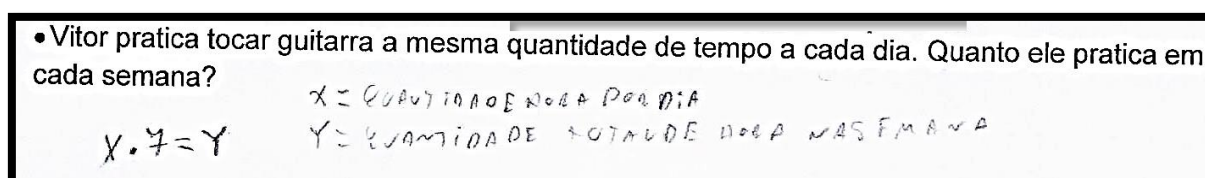 • Vitor pratica tocar guitarra a mesma quantidade de tempo a cada dia. Quanto ele pratica em
cada semana?
X = QUANTIDADE HORA POR DIA
X . 7 = Y
Y = QUANTIDADE TOTAL DE HORA NA SEMANA